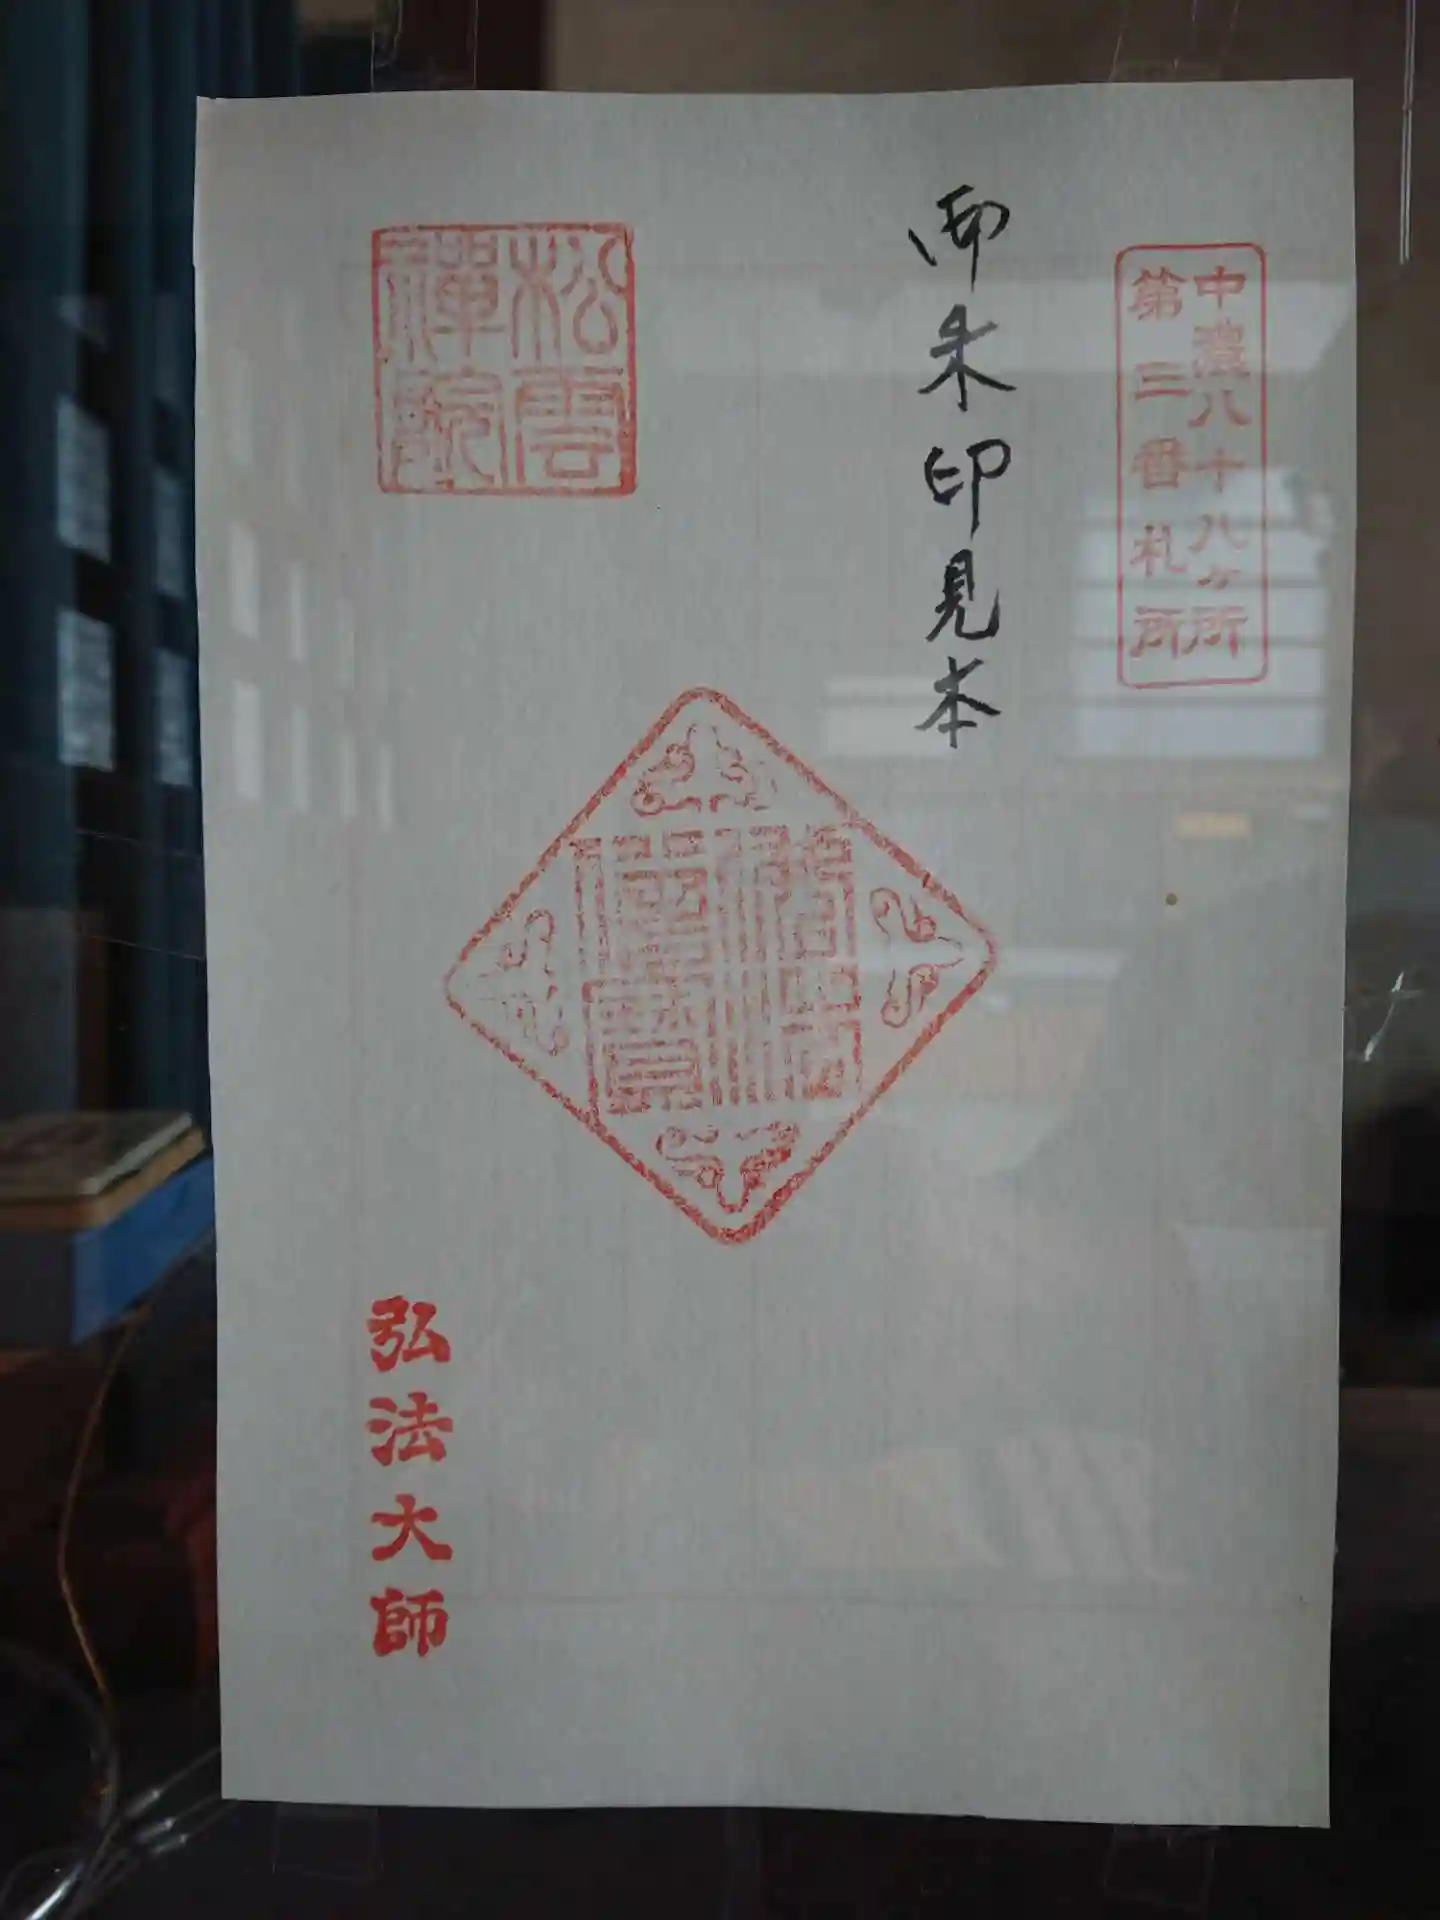 中濃八十八ヶ所
第三番札所
御朱印見本
佛法僧寳
松雲
禅院
弘法大師